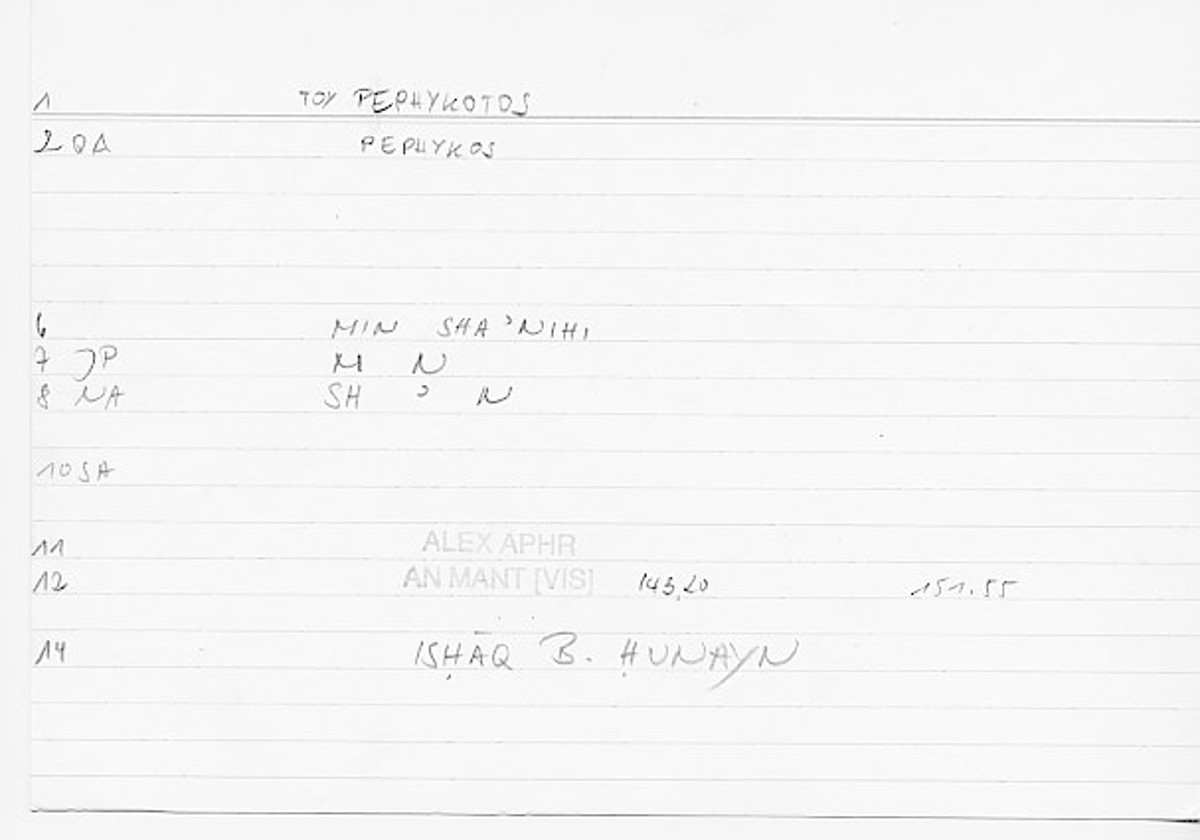 1 TOY PEPHYKOTOS
2 QA PEPHYKOS
6 MIN SHA'NIHI
7 JP M N
8 NA SH ' N
10 SA
11 ALEX APHR
12 AN MANT [VIS] 143,20 151.55
14 ISḤĀQ B. ḤUNAYN